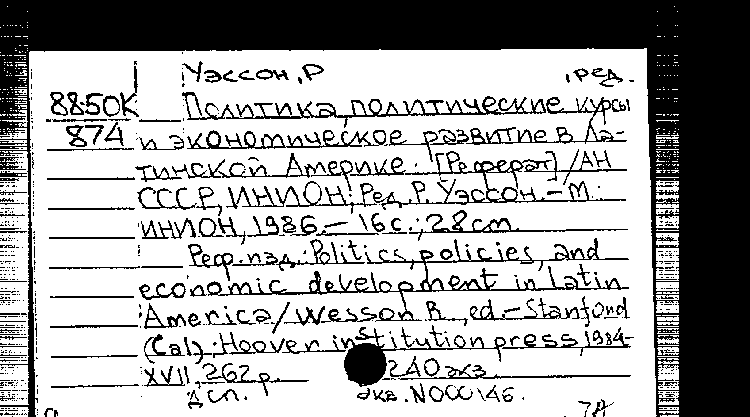 Уэссон, Р , ред.
88-50К Политика, политические курсы
874 и экономическое развитие в Ла-
тинской Америке: [Реферат] / АН
СССР, ИНИОН; Ред. Р. Уэссон. – М.:
ИНИОН, 1986. – 16 с.; 28 cm.
Реф. изд.: Politics, policies, and
economic development in Latin
America / Wesson R., ed. – Stanford
(Cal.): Hoover institution press, 1984-
XVII, 262 p. 240 экз.
Дсп. Экз. N000146.